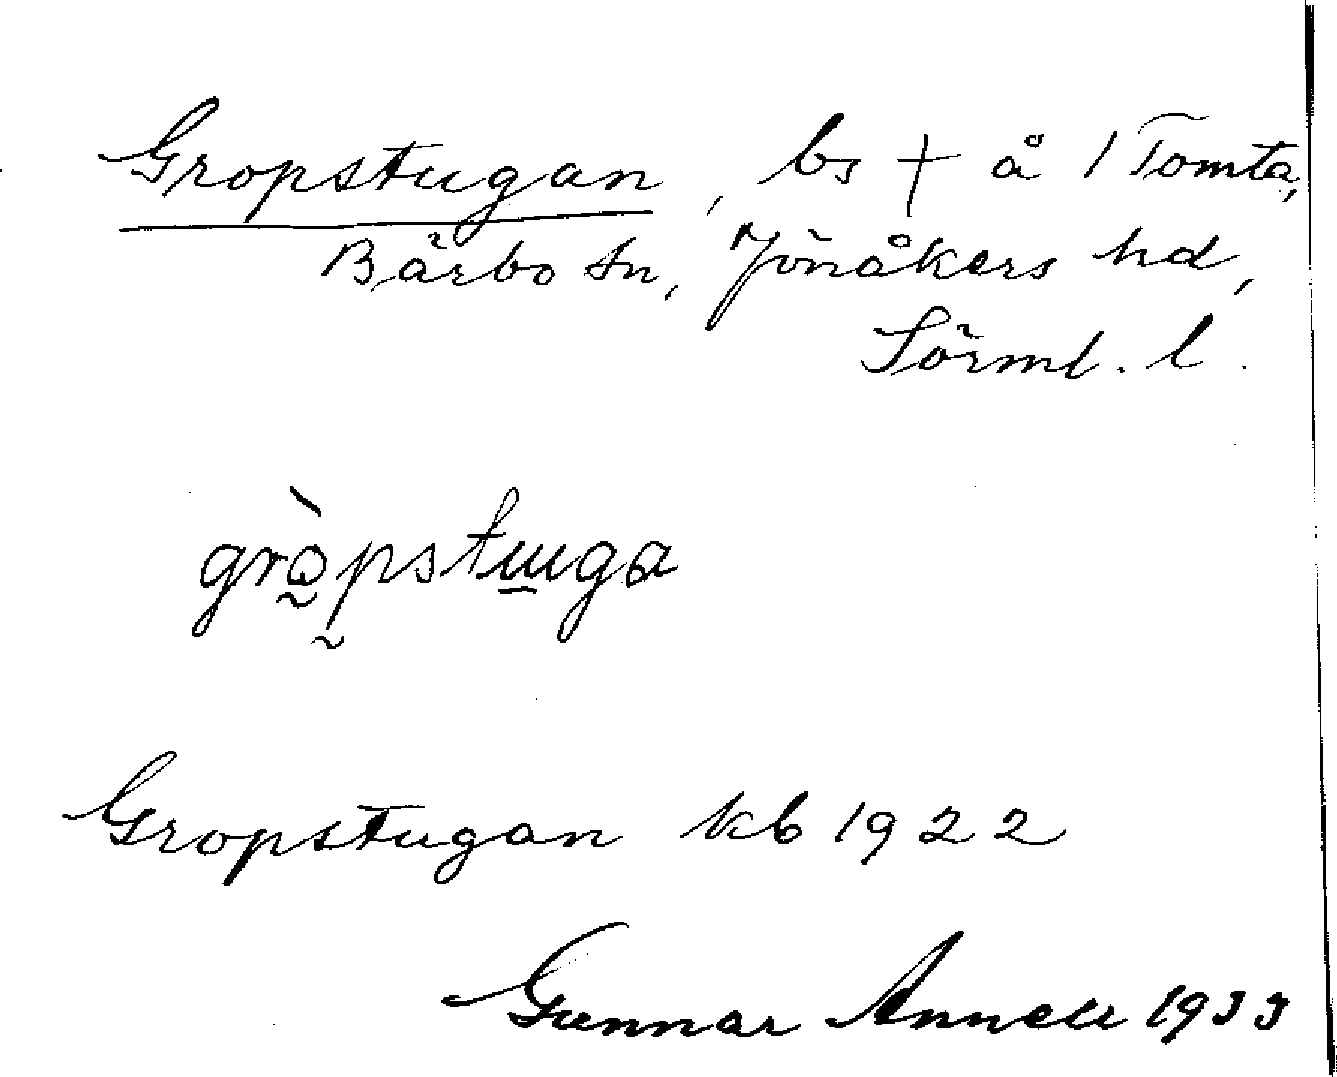 Gropstugan, bs † å 1 Tomta,
Bärbo sn, Jönåkers hd,
Sörml. l.
grò̰p̰stu̱ga
Gropstugan kb 1922
Gunnar Annell 1933